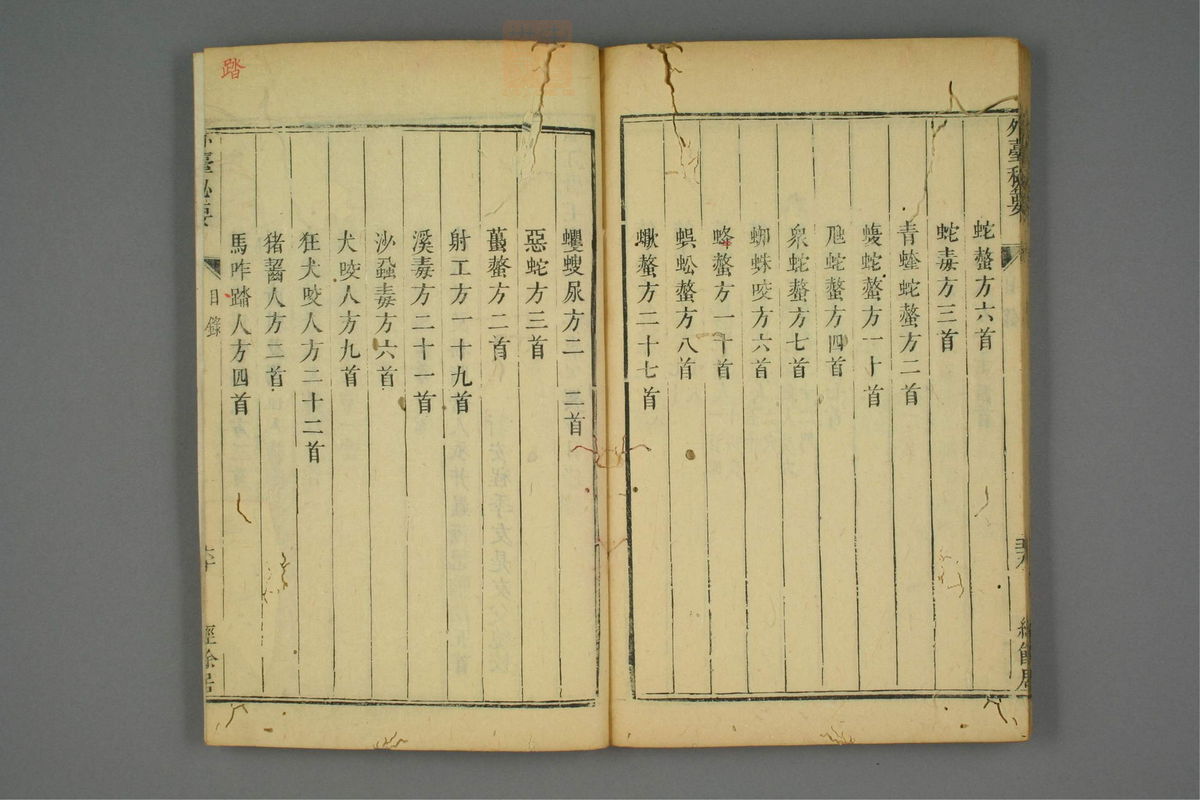 外臺秘要
蛇螫方六首
蛇毒方三首
青蝰蛇螫方二首
蝮蛇螫方一十首
虺蛇螫方四首
衆蛇螫方七首
蜘蛛咬方六首
蜂螫方一十首
蜈蚣螫方八首
蠍螫方二十七首
蠷螋尿方二 二首
惡蛇方三首
蠆螫方二首
射工方一十九首
溪毒方二十一首
沙蝨毒方六首
犬咬人方九首
狂犬咬人方二十二首
猪齧人方二首
馬咋踏人方四首
臺秘要
目錄
經餘居
踏